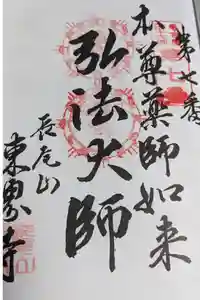 第七番
本尊薬師如来
弘法大師
長尾山
東寺